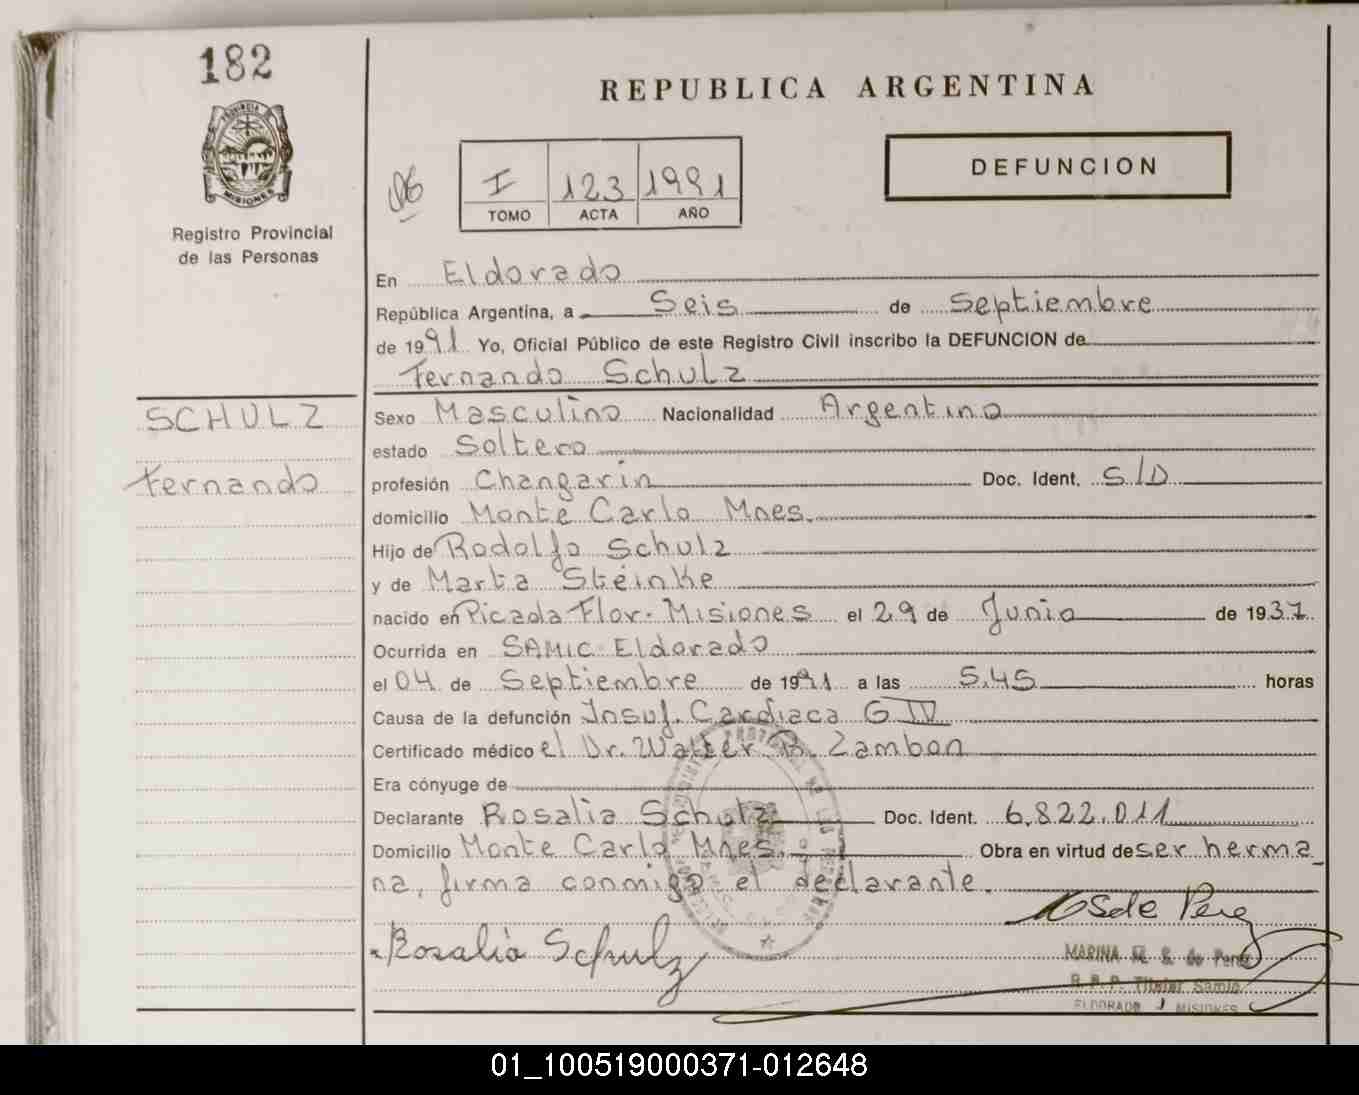 182
REPUBLICA ARGENTINA
PROVINCIA DE
MISIONES
I 123 1991
TOMO ACTA AÑO
DEFUNCION
Registro Provincial
de las Personas
En Eldorado
República Argentina, a Seis de Septiembre
de 1991 Yo, Oficial Público de este Registro Civil inscribo la DEFUNCION de
Fernando Schulz
SCHULZ
Fernando
Sexo Masculino Nacionalidad Argentino
estado Soltero
profesión Changarin Doc. Ident. S/D
domicilio Monte Carlo Mnes.
Hijo de Rodolfo Schulz
y de Marta Steinke
nacido en Picada Flor. Misiones el 29 de Junio de 1937
Ocurrida en SAMIC Eldorado
el 04 de Septiembre de 1991 a las 5,45 horas
Causa de la defunción Insuf. Cardiaca G IV
Certificado médico el Dr. Walter B. Zambon
Era cónyuge de
Declarante Rosalia Schulz Doc. Ident. 6.822.011
Domicilio Monte Carlo Mnes. Obra en virtud de ser herma_
na, firma conmigo el declarante.
Rosalia Schulz
MARINA M. S. de Perez
Titular Samic
ELDORADO MISIONES
01_100519000371-012648